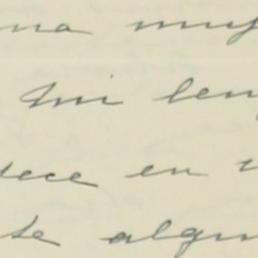 na muj
mi len
dece en
te algun